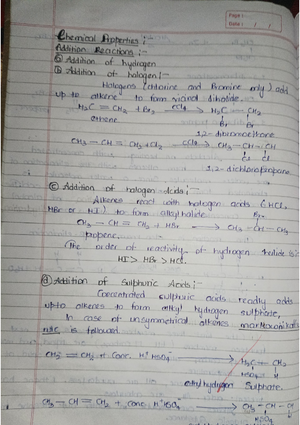 Page :
Date : / /
Chemical Properties :-
Addition Reactions :-
ⓐ Addition of hydrogen
ⓑ Addition of halogen :-
Halogens (chlorine and Bromine only) add
up to alkene to form vicinal dihalide.
H₂C = CH₂ + Br₂ —CCl₄→ H₂C — CH₂
Br Br
ethene
1,2-dibromoethane
CH₃ – CH = CH₂ + Cl₂ —CCl₄→ CH₃ – CH – CH
Cl Cl
1,2-dichloropropane
ⓒ Addition of halogen Acids :-
Alkenes react with halogen acids (HCl,
HBr or HI) to form alkyl halide.
Br
CH₃ – CH = CH₂ + HBr → CH₃ – CH – CH₃
propene.
The order of reactivity of hydrogen halide is :-
HI > HBr > HCl.
ⓓ Addition of Sulphuric Acids :-
Concentrated sulphuric acids readily adds
upto alkenes to form alkyl hydrogen sulphate,
In case of unsymmetrical alkenes markownikoffs
rule is followed.
+ Conc. →
ethyl hydrogen Sulphate.
CH₃ – CH = CH₂ + conc. →